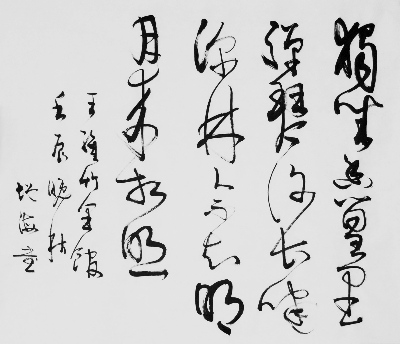 獨坐幽篁里
彈琴復長嘯
深林人不知明
月来相照
王維竹里館
壬辰晚秋
海書